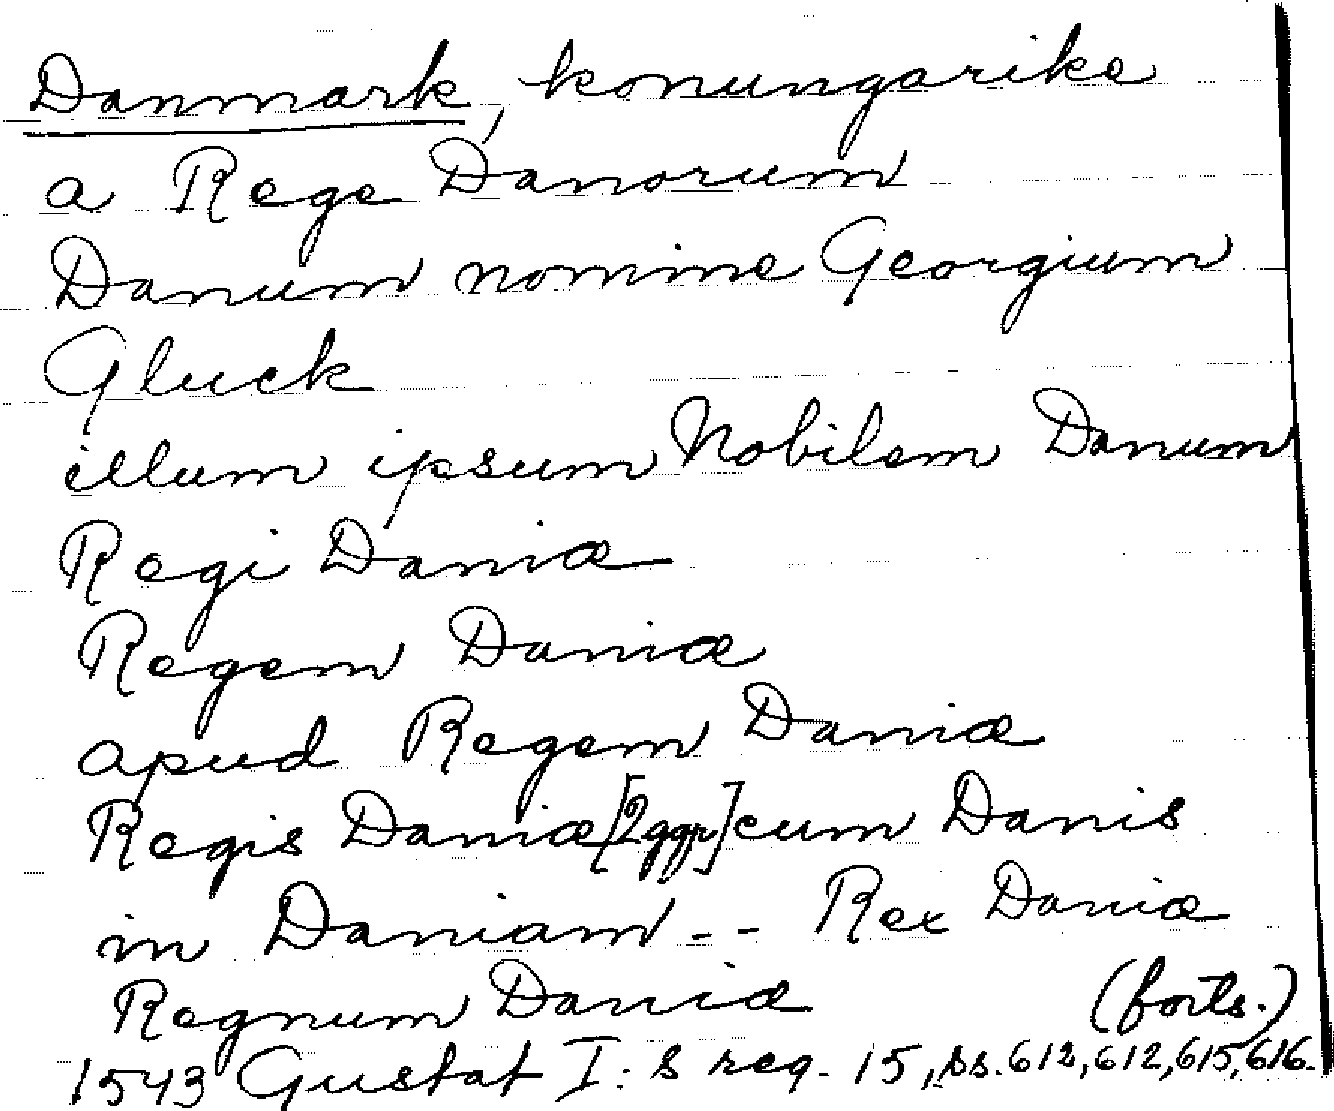 Danmark, konungarike
a Rege Danorum
Danum nomine Georgium
Gluck
illum ipsum Nobilem Danum
Regi Daniæ
Regem Daniæ
apud Regem Daniæ
Regis Daniæ [2 ggr] cum Danis
in Daniam -- Rex Daniæ
Regnum Daniæ (forts.)
1543 Gustaf I:s reg. 15, ss. 612, 612, 615, 616.